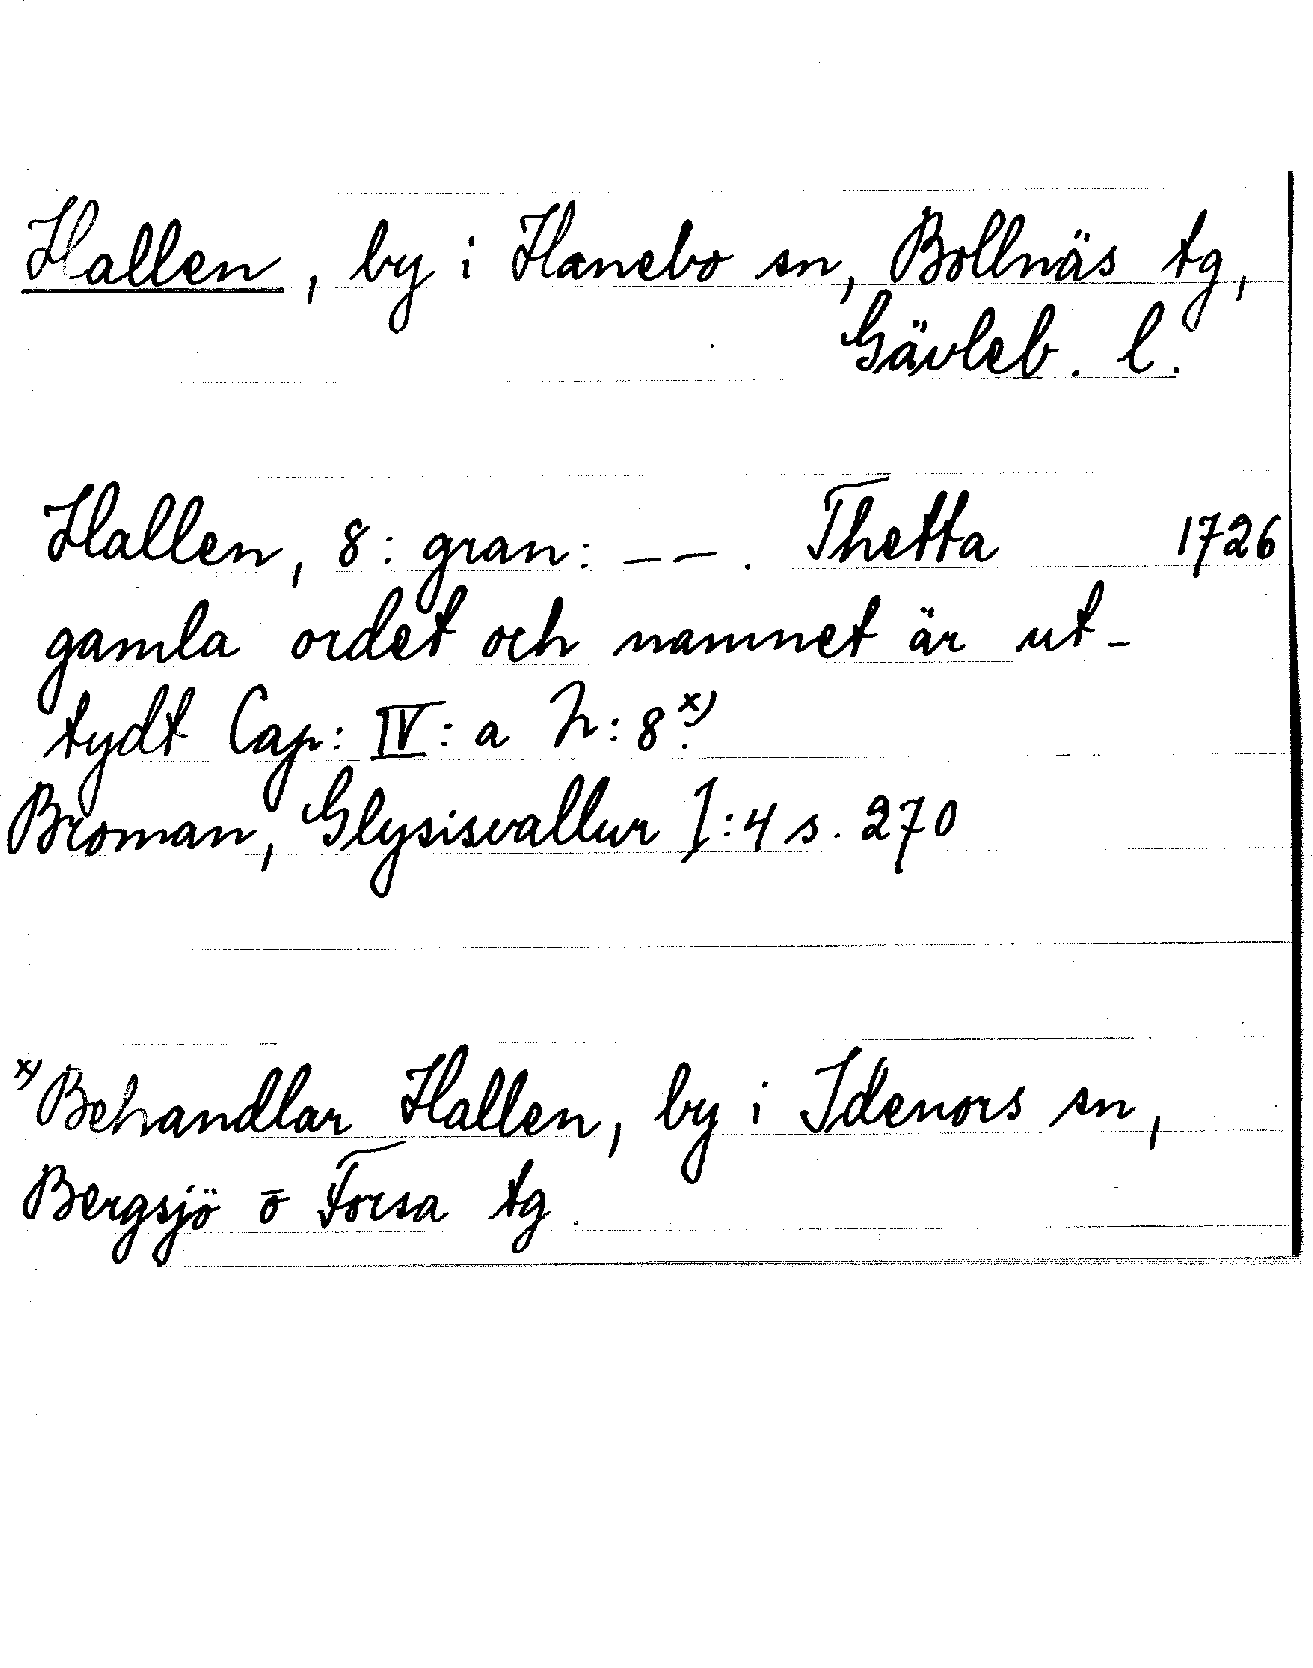 Hallen, by i Hanebo sn, Bollnäs tg,
Gävleb. l.
Hallen, 8: gran: — —. Thetta 1726
gamla ordet och namnet är ut-
tydt Cap: IV: a N: 8.x)
Broman, Glysisvallur I:4 s. 270
x) Behandlar Hallen, by i Idenors sn,
Bergsjö o Forsa tg.